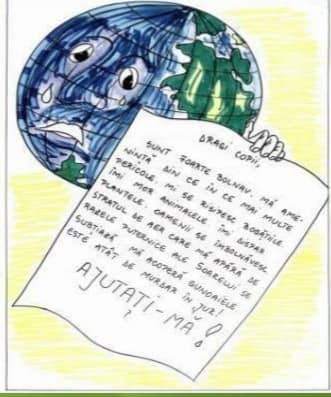 DRAGI COPII,
SUNT FOARTE BOLNAV. MĂ AME-
NINȚĂ DIN CE ÎN CE MAI MULTE
PERICOLE. MI SE RISIPESC BOGĂȚIILE.
ÎMI MOR ANIMALELE. ÎMI DISPAR
PLANTELE. OAMENII SE ÎMBOLNĂVESC.
STRATUL DE AER CARE MĂ APĂRĂ DE
RAZELE PUTERNICE ALE SOARELUI SE
SUBȚIAZĂ. MĂ ACOPERĂ GUNOAIELE.
ESTE ATÂT DE MURDAR ÎN JUR!
AJUTAȚI-MĂ!